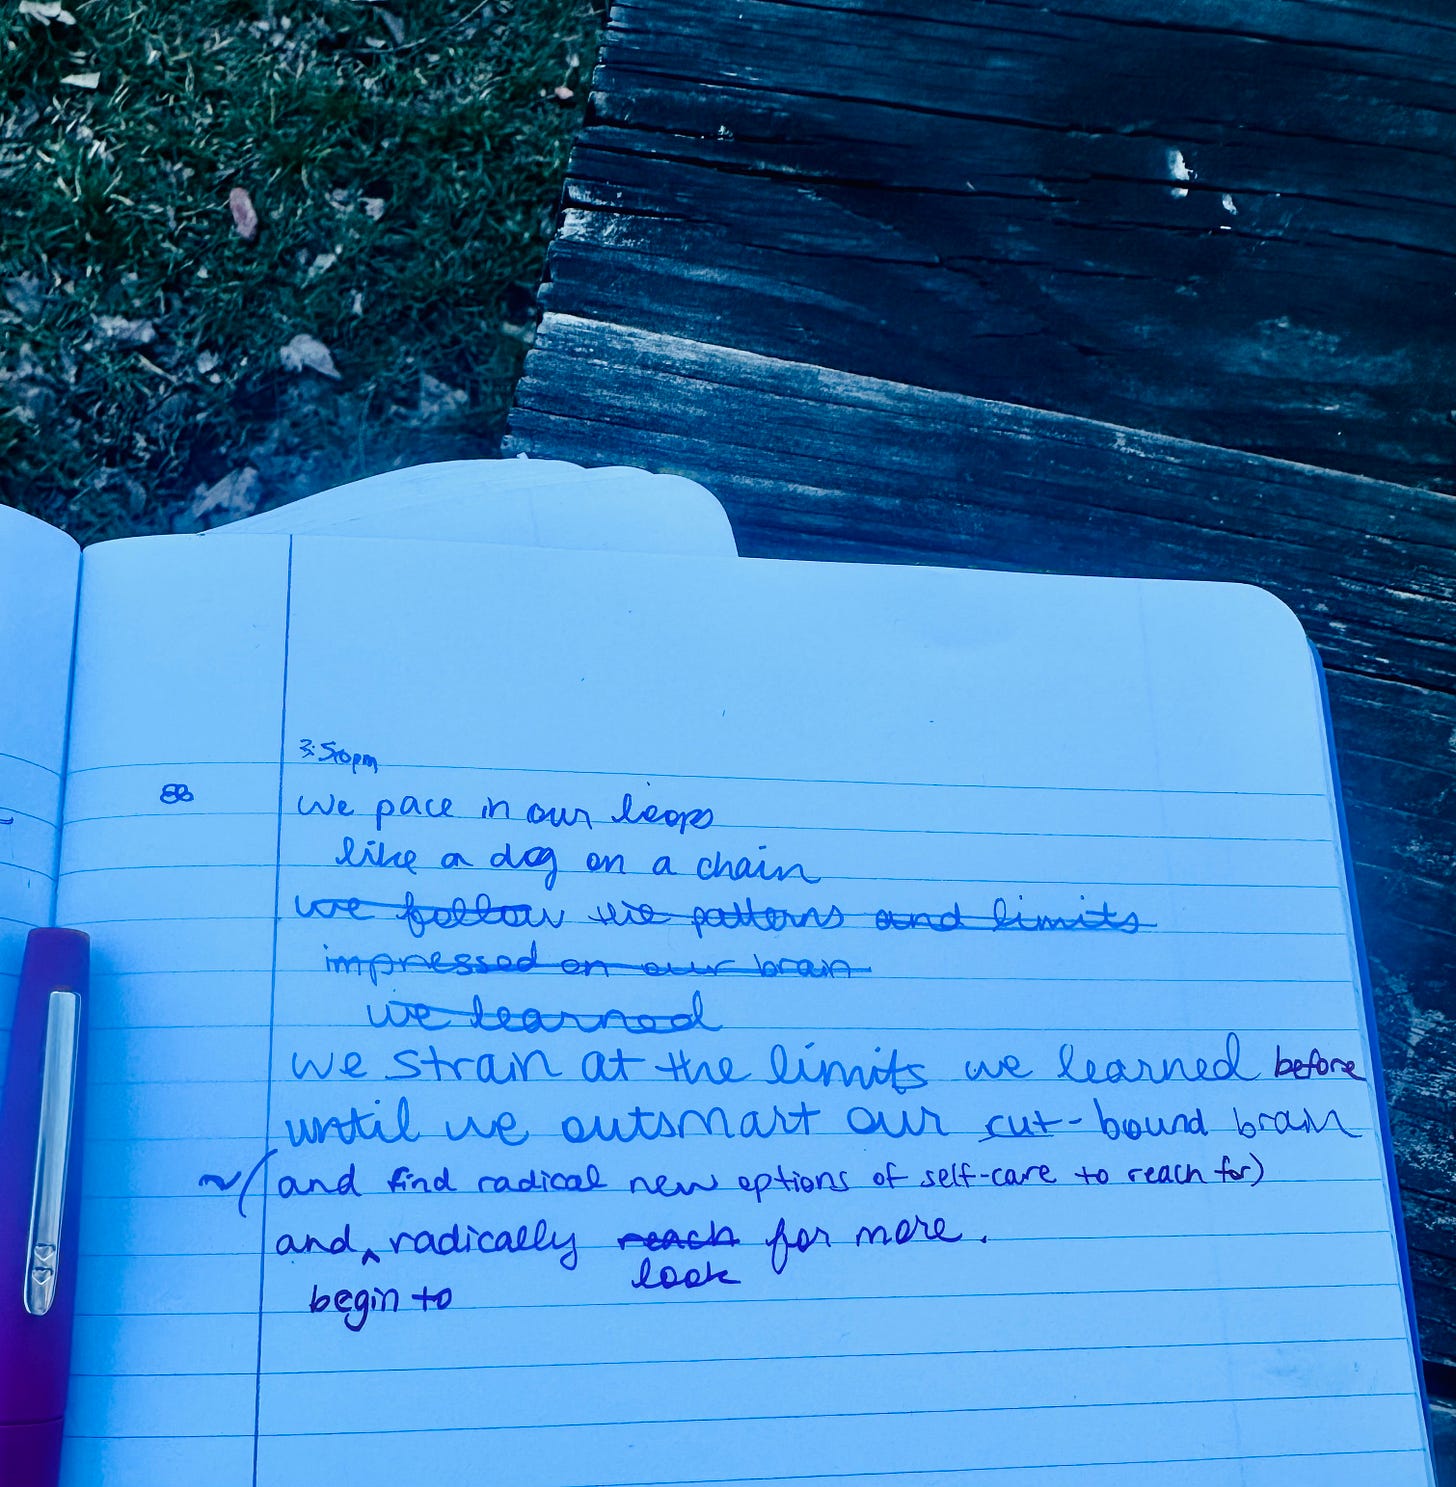 3:50pm
we pace in our loops
like a dog on a chain
we follow the patterns and limits
impressed on our brain
we learned
we strain at the limits we learned before
until we outsmart our rut-bound brain
~(and find radical new options of self-care to reach for)
and ^ radically reach for more.
look
begin to